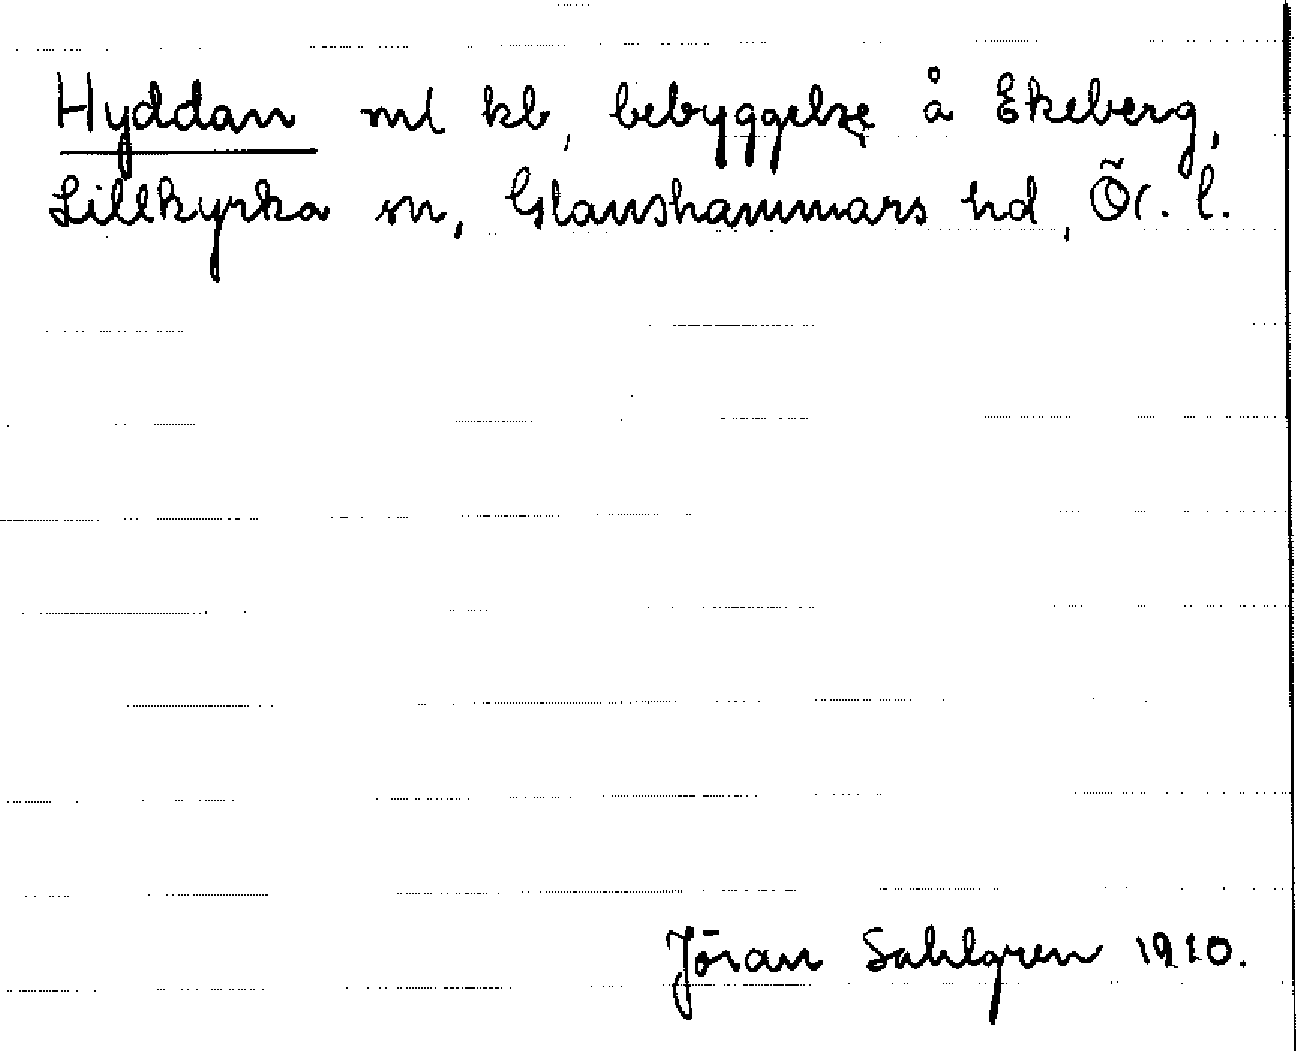 Hyddan ml kb, bebyggelse å Ekeberg,
Lillkyrka sn, Glanshammars hd, Ör. l.
Jöran Sahlgren 1910.